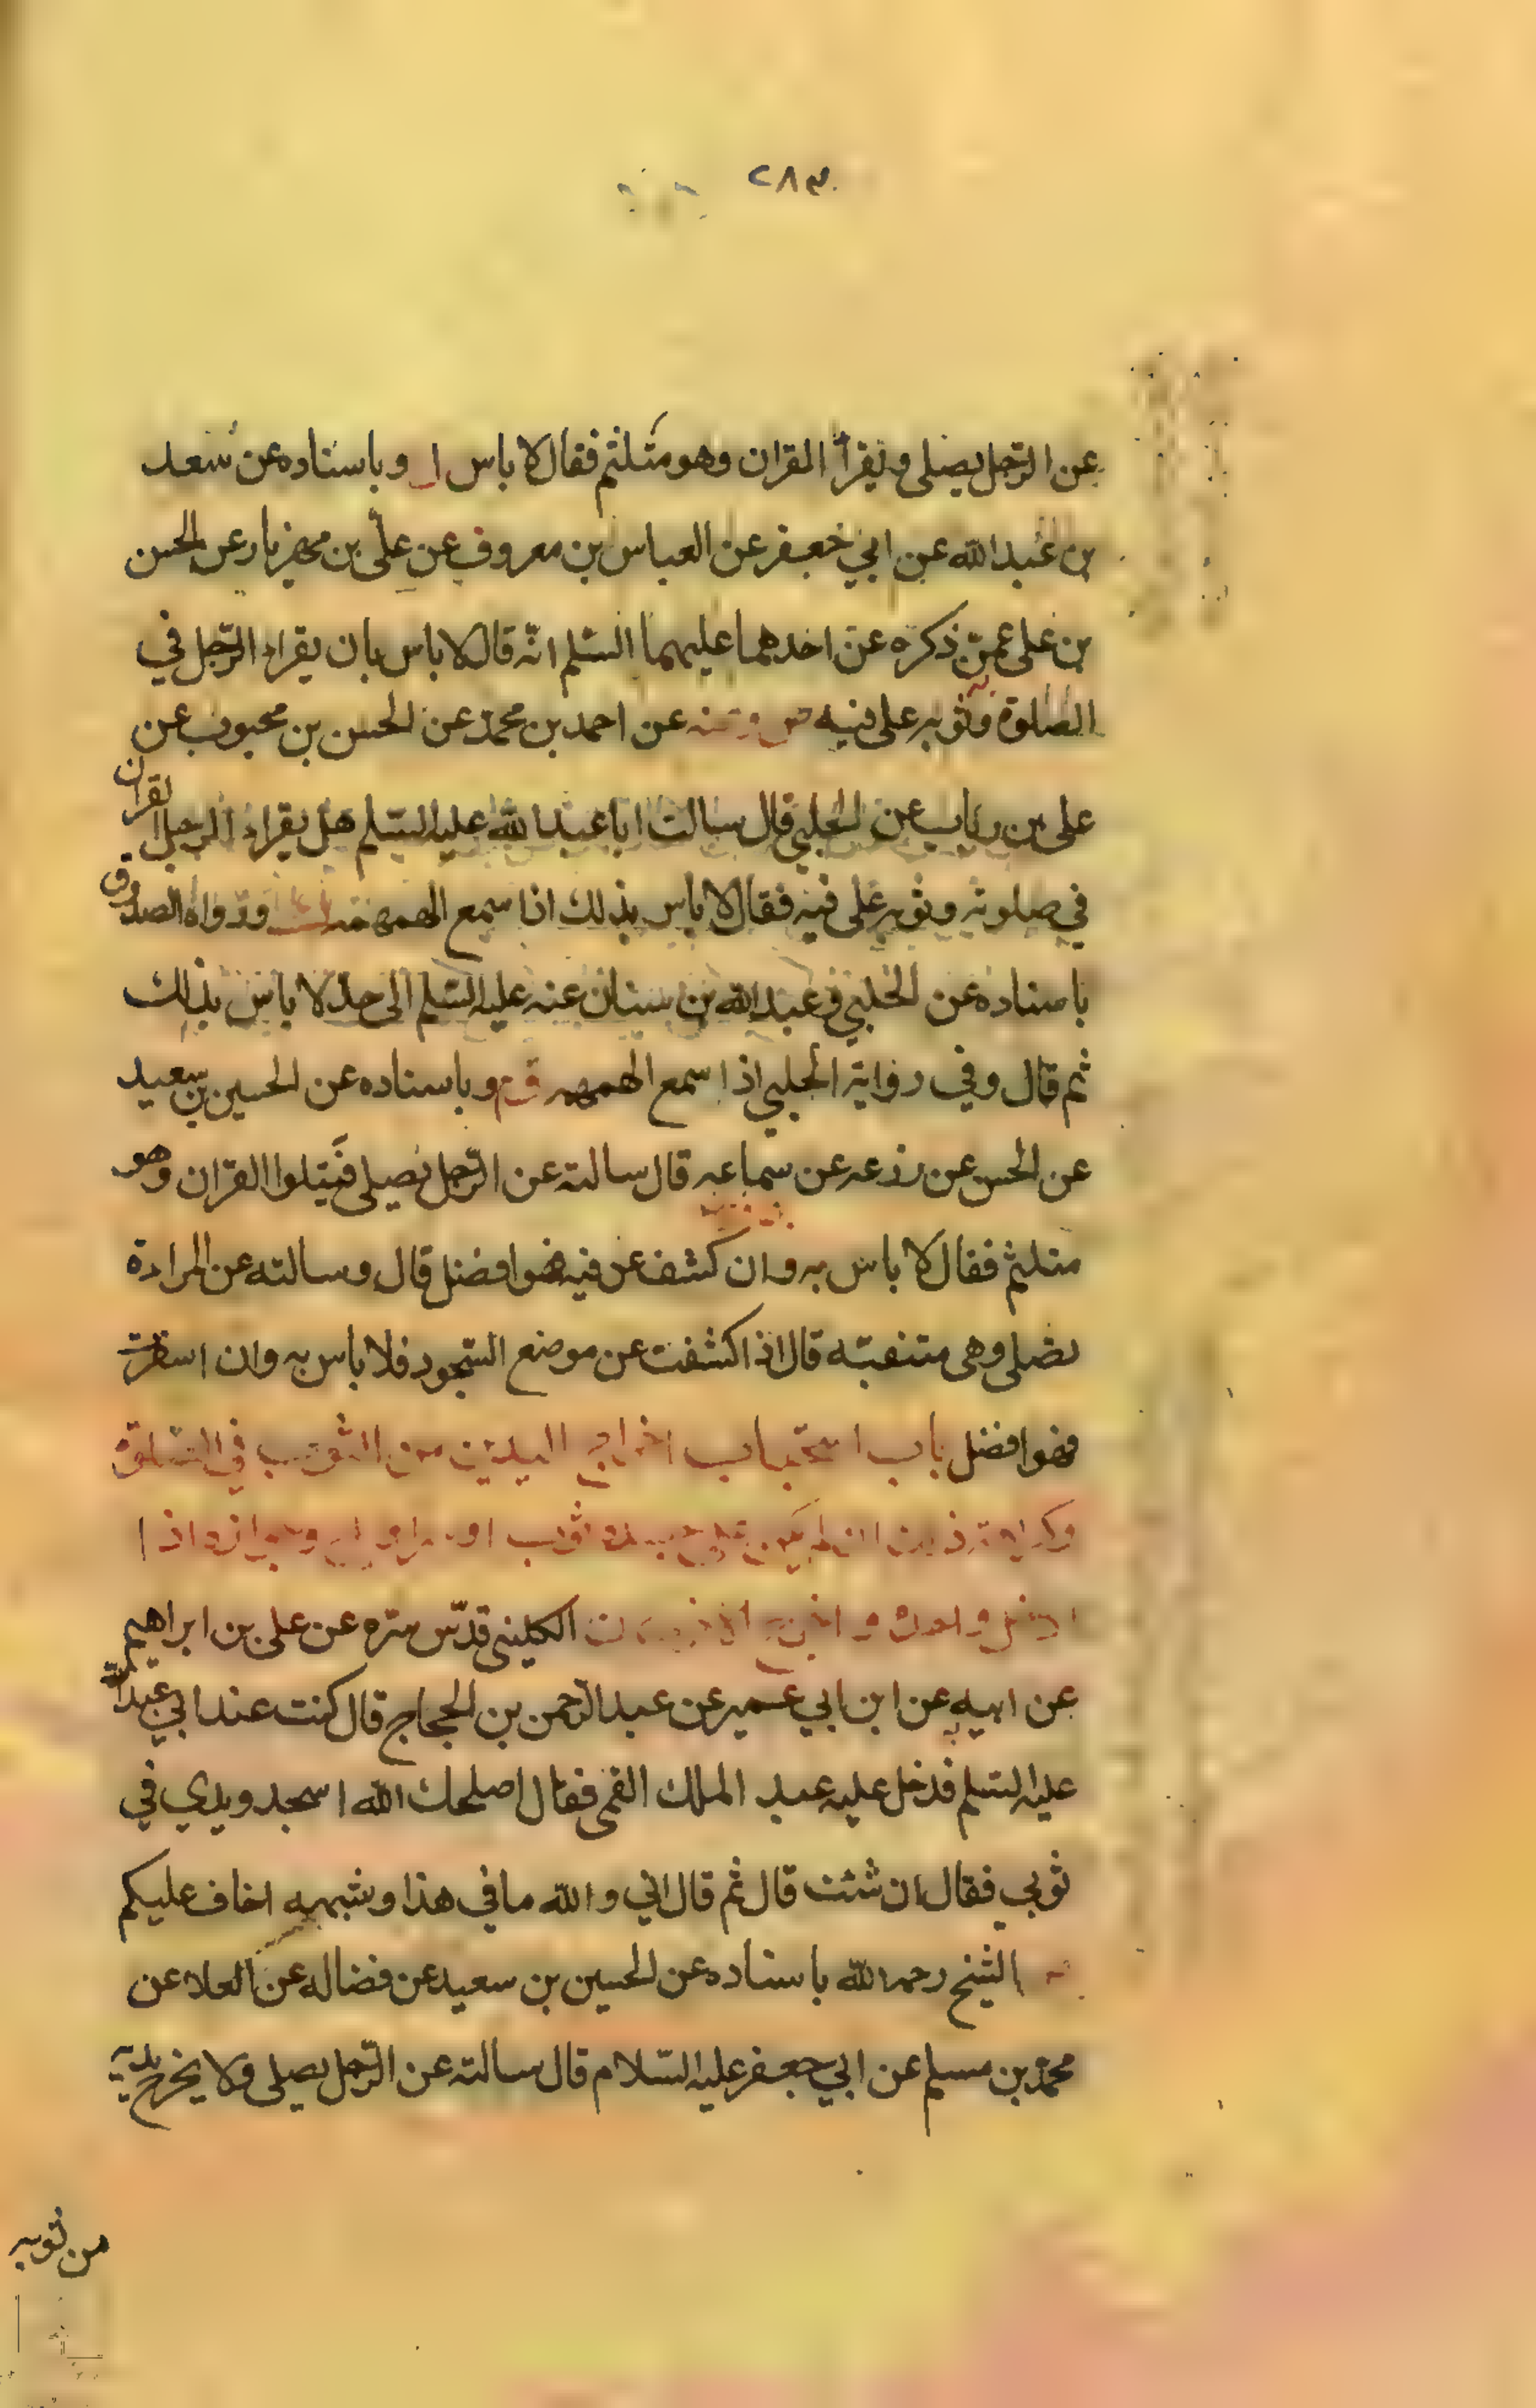 ٢٨٣
عن الرّجل يصلى ويقرأ القران وهو متلثم فقال لا باس وباسناده عن سعد
بن عبد الله عن ابي جعفر عن العباس بن معروف عن علىّ بن مهزيار عن الحسن
بن على عمّن ذكره عن احدهما عليهما السّلم انّه قال لا باس بان يقراء الرّجل في
الصلوة وثوبه على فيه ومنه عن احمد بن محمّد عن الحسن بن محبوب عن
على بن رياب عن الحلبي قال سالت ابا عبد الله عليه السّلم هل يقراء الرجل القران
في صلوته وثوبه على فيه فقال لا باس بذلك اذا سمع الهمهمة ورواه الصدوق
باسناده عن الحلبي وعبد الله بن سنان عنه عليه السّلم الى حد لا باس بذلك
ثم قال وفي رواية الحلبي اذا سمع الهمهمه وباسناده عن الحسين بن سعيد
عن الحسن عن زرعه عن سماعه قال سالته عن الرّجل يصلى فيتلوا القران وهو
متلثم فقال لا باس به وان كشف عن فيه فهو افضل قال وسالته عن المراة
تصلى وهى متنقبّه قال اذا كشفت عن موضع السّجود فلا باس به وان اسفرت
فهو افضل باب استحباب اخراج اليدين من الثوب في الصّلوة
وكراهة ان لم يكن ثوب او سراويل وجوازه اذا
ادخل واحدة واخرج الكلينى قدّس سرّه عن على بن ابراهيم
عن ابيه عن ابن ابي عمير عن عبد الرّحمن بن الحجاج قال كنت عند ابي عبد الله
عليه السّلم فدخل عليه عبد الملك القمى فقال اصلحك الله اسجد ويدي في
ثوبي فقال ان شئت قال ثم قال اني والله ما في هذا وشبهه اخاف عليكم
الشيخ رحمه الله باسناده عن الحسين بن سعيد عن فضاله عن العلا عن
محمّد بن مسلم عن ابي جعفر عليه السّلام قال سالته عن الرّجل يصلى ولا يخرج يديه
من ثوبه